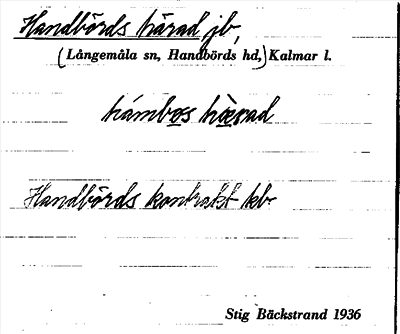 Handbörds härad jb,
(Långemåla sn, Handbörds hd,) Kalmar l.
hámbos hærad
Handbörds kontrakt kb
Stig Bäckstrand 1936